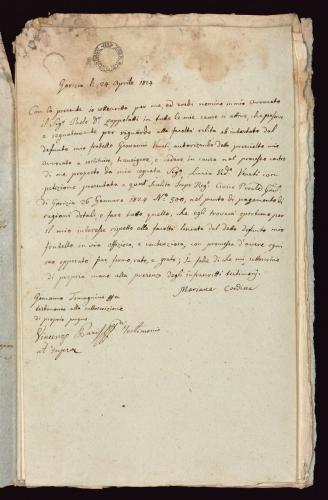 Gorizia li 24 Aprile 1824
Con la presente io sottoscritta per me, ed eredi nomino in mio Avvocato
il Sigr Paolo Dr in tutte le mie cause sì attive, che passive
e segnatamente per riguardo alla facoltà relita ab intestato dal
defunto mio fratello Giovanni autorizzando detto prenominato mio
Avvocato a sostituire, transigere, e cedere in causa nel processo contro
di me proposto da mia cognata Sigra Lucia Vda con
petizione presentata a quest' Inclito Imp: Reg: Civico Provle
di Gorizia 26 Gennaro 1824 No 500, in punto di pagamento di
ragioni dotali, e fare tutto quello, che egli troverà opportuno per
il mio interesse rispetto alla facoltà lasciata dal detto defunto mio
fratello in via offiziosa, e contenziosa, con promessa d'avere ogni
suo operato per fermo, rato, e grato; In fede di che mi sottoscrivo
di propria mano alla presenza degli infrascritti testimonj.
Mariana
Germano
testimonio alla sottoscrizione
di proprio pugno
Vincenzo Testimonio
ut supra